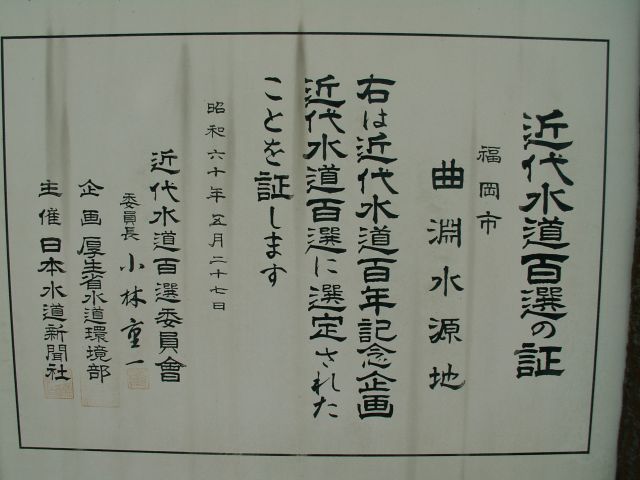 近代水道百選の証
福岡市
曲淵水源地
右は近代水道百年記念企画
近代水道百選に選定された
ことを証します
昭和六十年五月二十七日
近代水道百選委員會
委員長 小林重一
企画 厚生省水道環境部
主催 日本水道新聞社